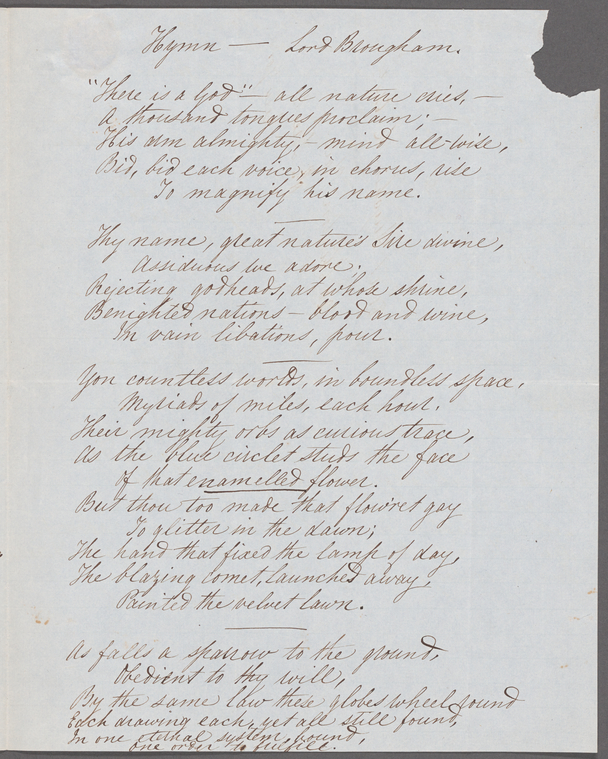 Hymn — Lord Brougham.
"There is a God" — all nature cries, —
A thousand tongues proclaim; —
His arm almighty, — mind all-wise,
Bid, bid each voice, in chorus, rise
To magnify his name.
Thy name, great nature's Sire divine,
Assiduous we adore;
Rejecting godheads, at whose shrine,
Benighted nations — blood and wine,
In vain libations, pour.
Yon countless worlds, in boundless space,
Myriads of miles, each hour,
Their mighty orbs as curious trace,
As the blue circlet studs the face
Of that enamelled flower.
But thou too made that flow'ret gay
To glitter in the dawn;
The hand that fixed the lamp of day,
The blazing comet, launched away,
Painted the velvet lawn.
As falls a sparrow to the ground,
Obedient to thy will,
By the same law these globes wheel round
Each drawing each, yet all still found,
In one eternal system bound,
One order to fulfill.